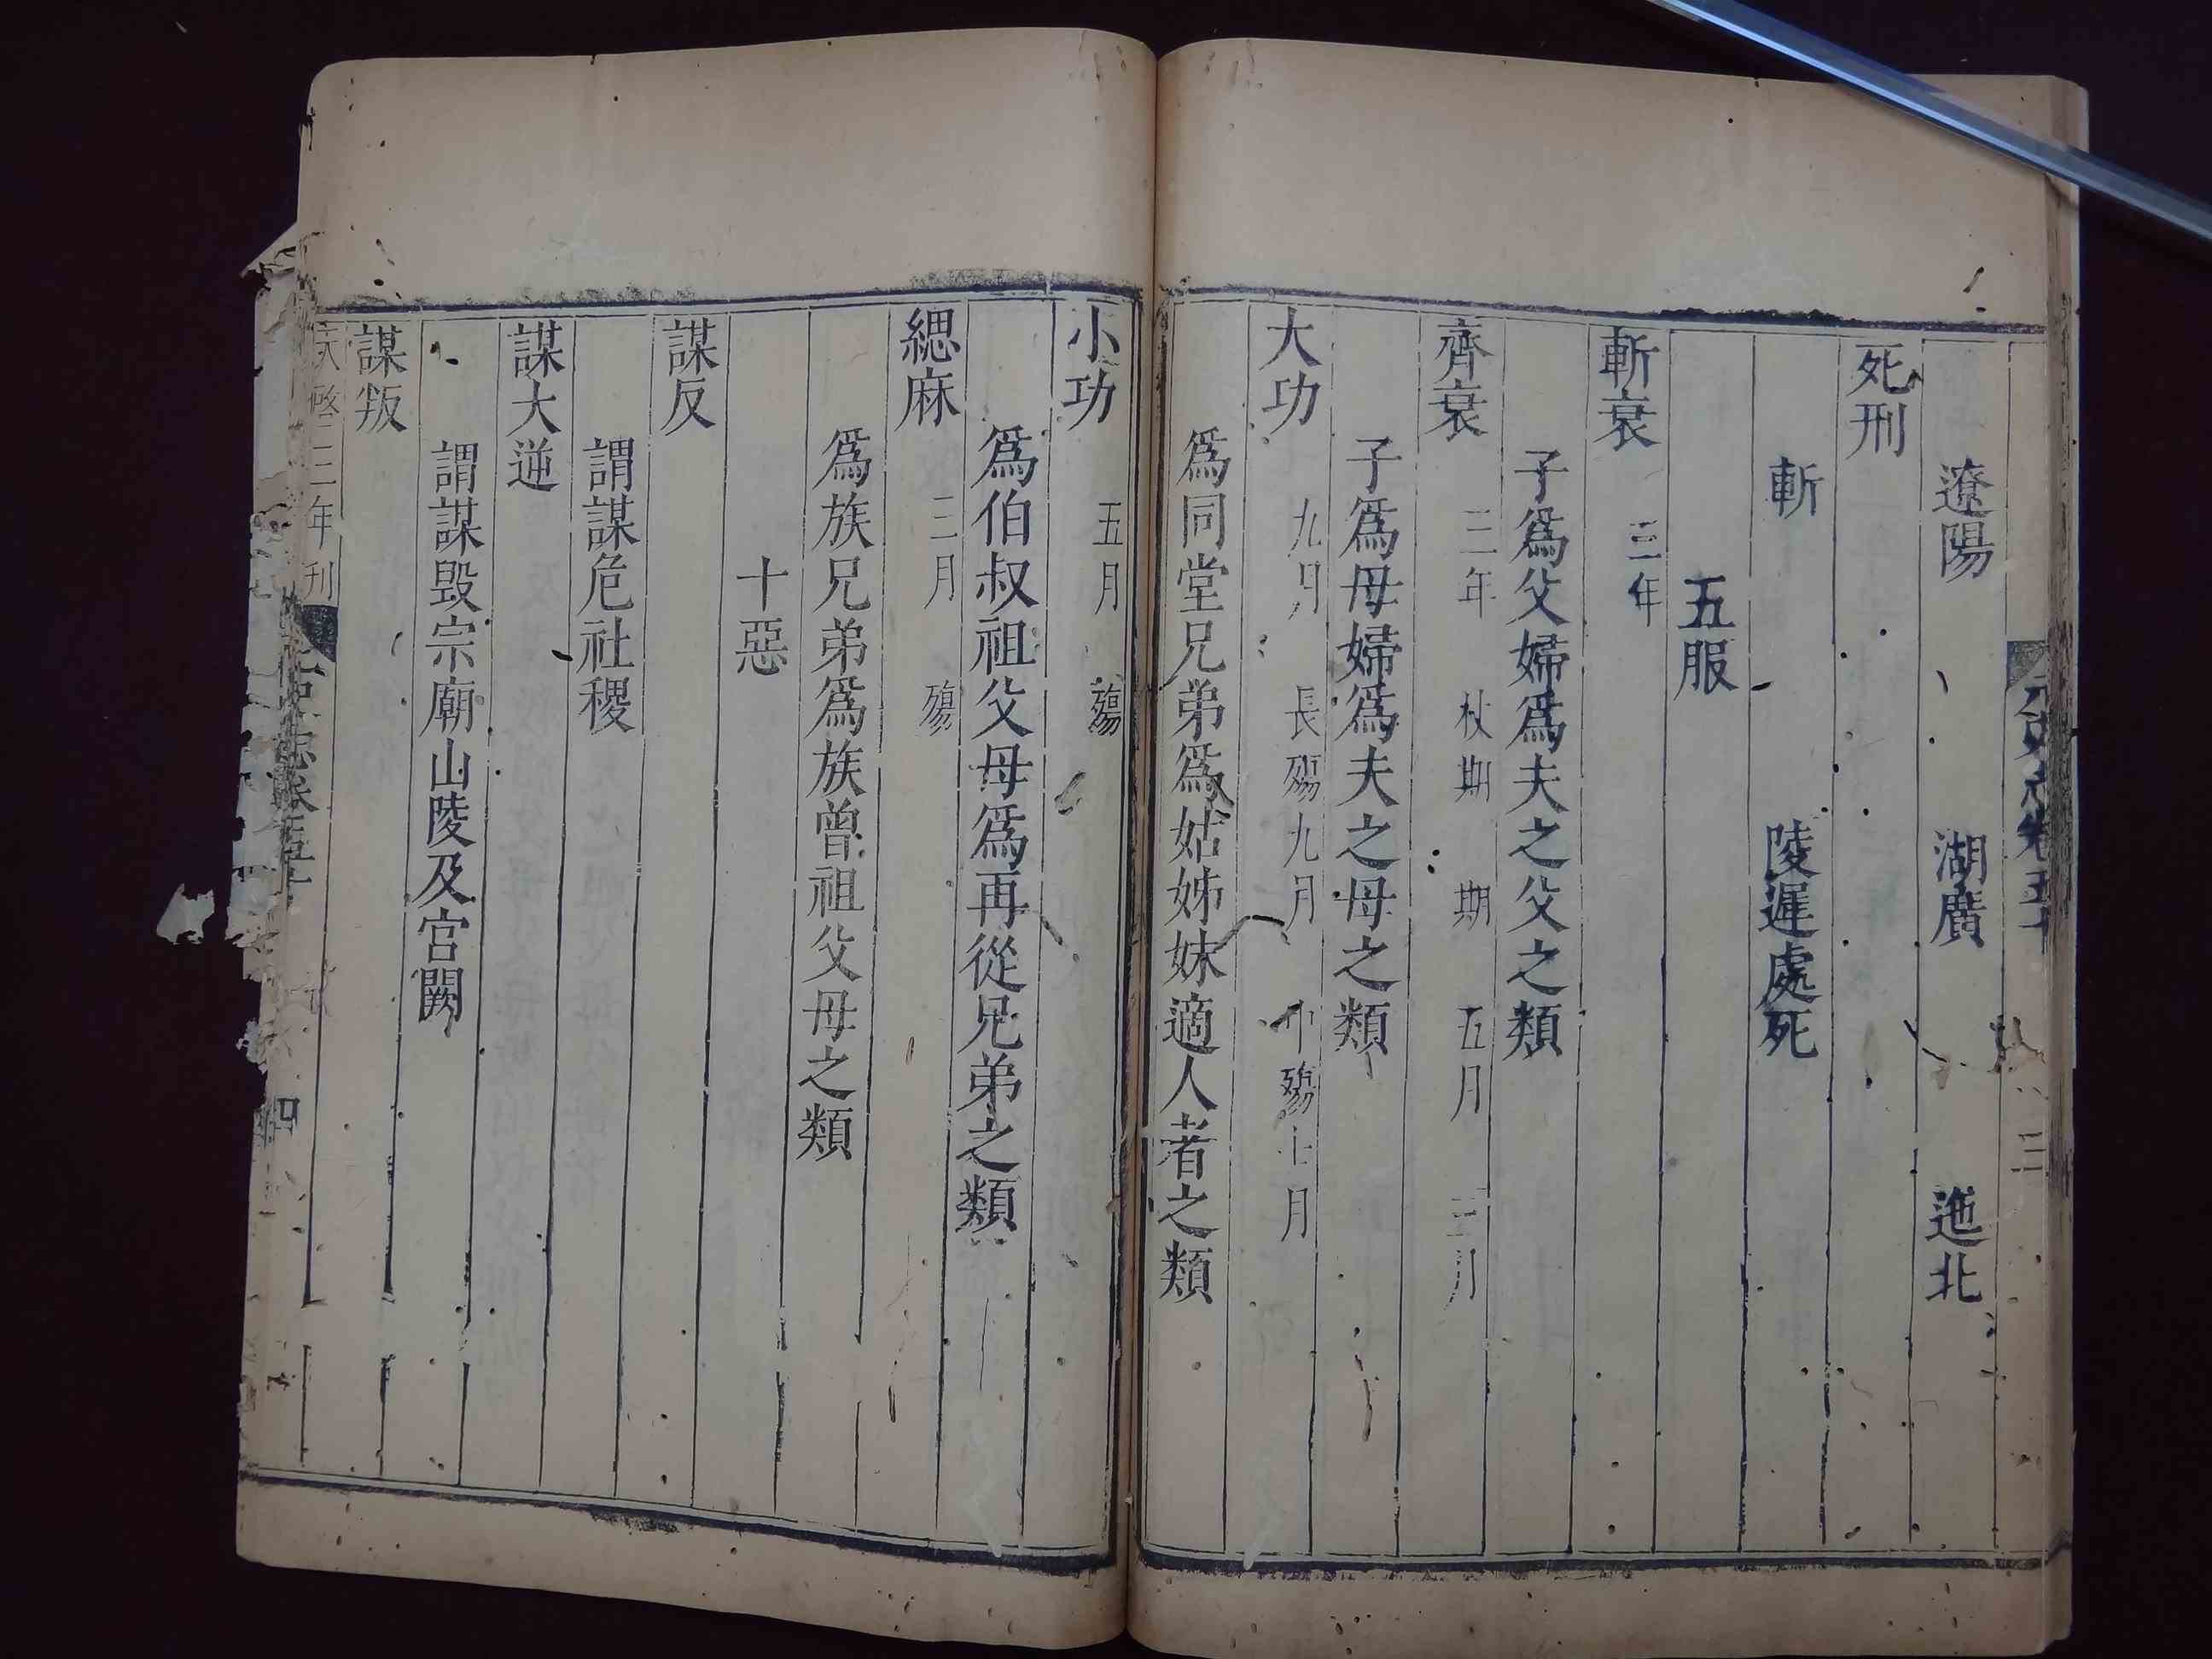 元史志卷五十
三
遼陽 湖廣 迤北
死刑
斬 陵遲處死
五服
斬衰 三年
子爲父婦爲夫之父之類
齊衰 三年 杖期 期 五月 三月
子爲母婦爲夫之母之類
大功 九月 長殤九月 中殤七月
爲同堂兄弟爲姑姊妹適人者之類
小功 五月 殤
爲伯叔祖父母爲再從兄弟之類
緦麻 三月 殤
爲族兄弟爲族曾祖父母之類
十惡
謀反
謂謀危社稷
謀大逆
謂謀毀宗廟山陵及宮闕
謀叛
天啓三年刊
元史志卷五十
四